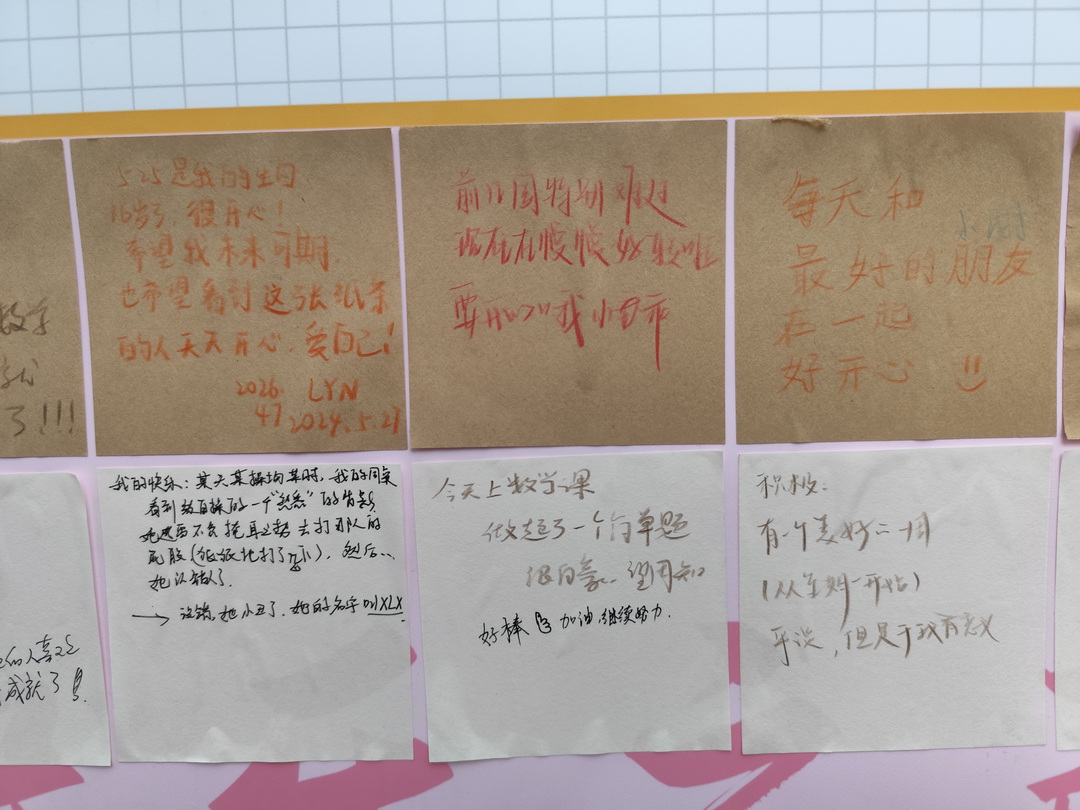 数学
就
了!!!
5.25是我的生日
16岁了,很开心!
希望我未来可期,
也希望看到这张纸条
的人天天开心,爱自己!
2026. LYN
47 2024.5.27
前几周特别难过
现在在慢慢好转啦
要开心心我小乖
每天和
最好的朋友
在一起
好开心
人喜欢
成就了
我的快乐:某天某操场某时,我的同桌
看到 一个"熟悉"的背影
她迅雷不及掩耳之势去打那人的
屁股(狠狠地打了几下),然后...
她认错人了.
→ 没错,她小丑了,她的名字叫XLX
今天上数学课
做起了一个简单题
很自豪,望周知
好棒 加油,继续努力.
积极:
有一个美好的一周
(从 一开始)
平淡,但是于我有意义